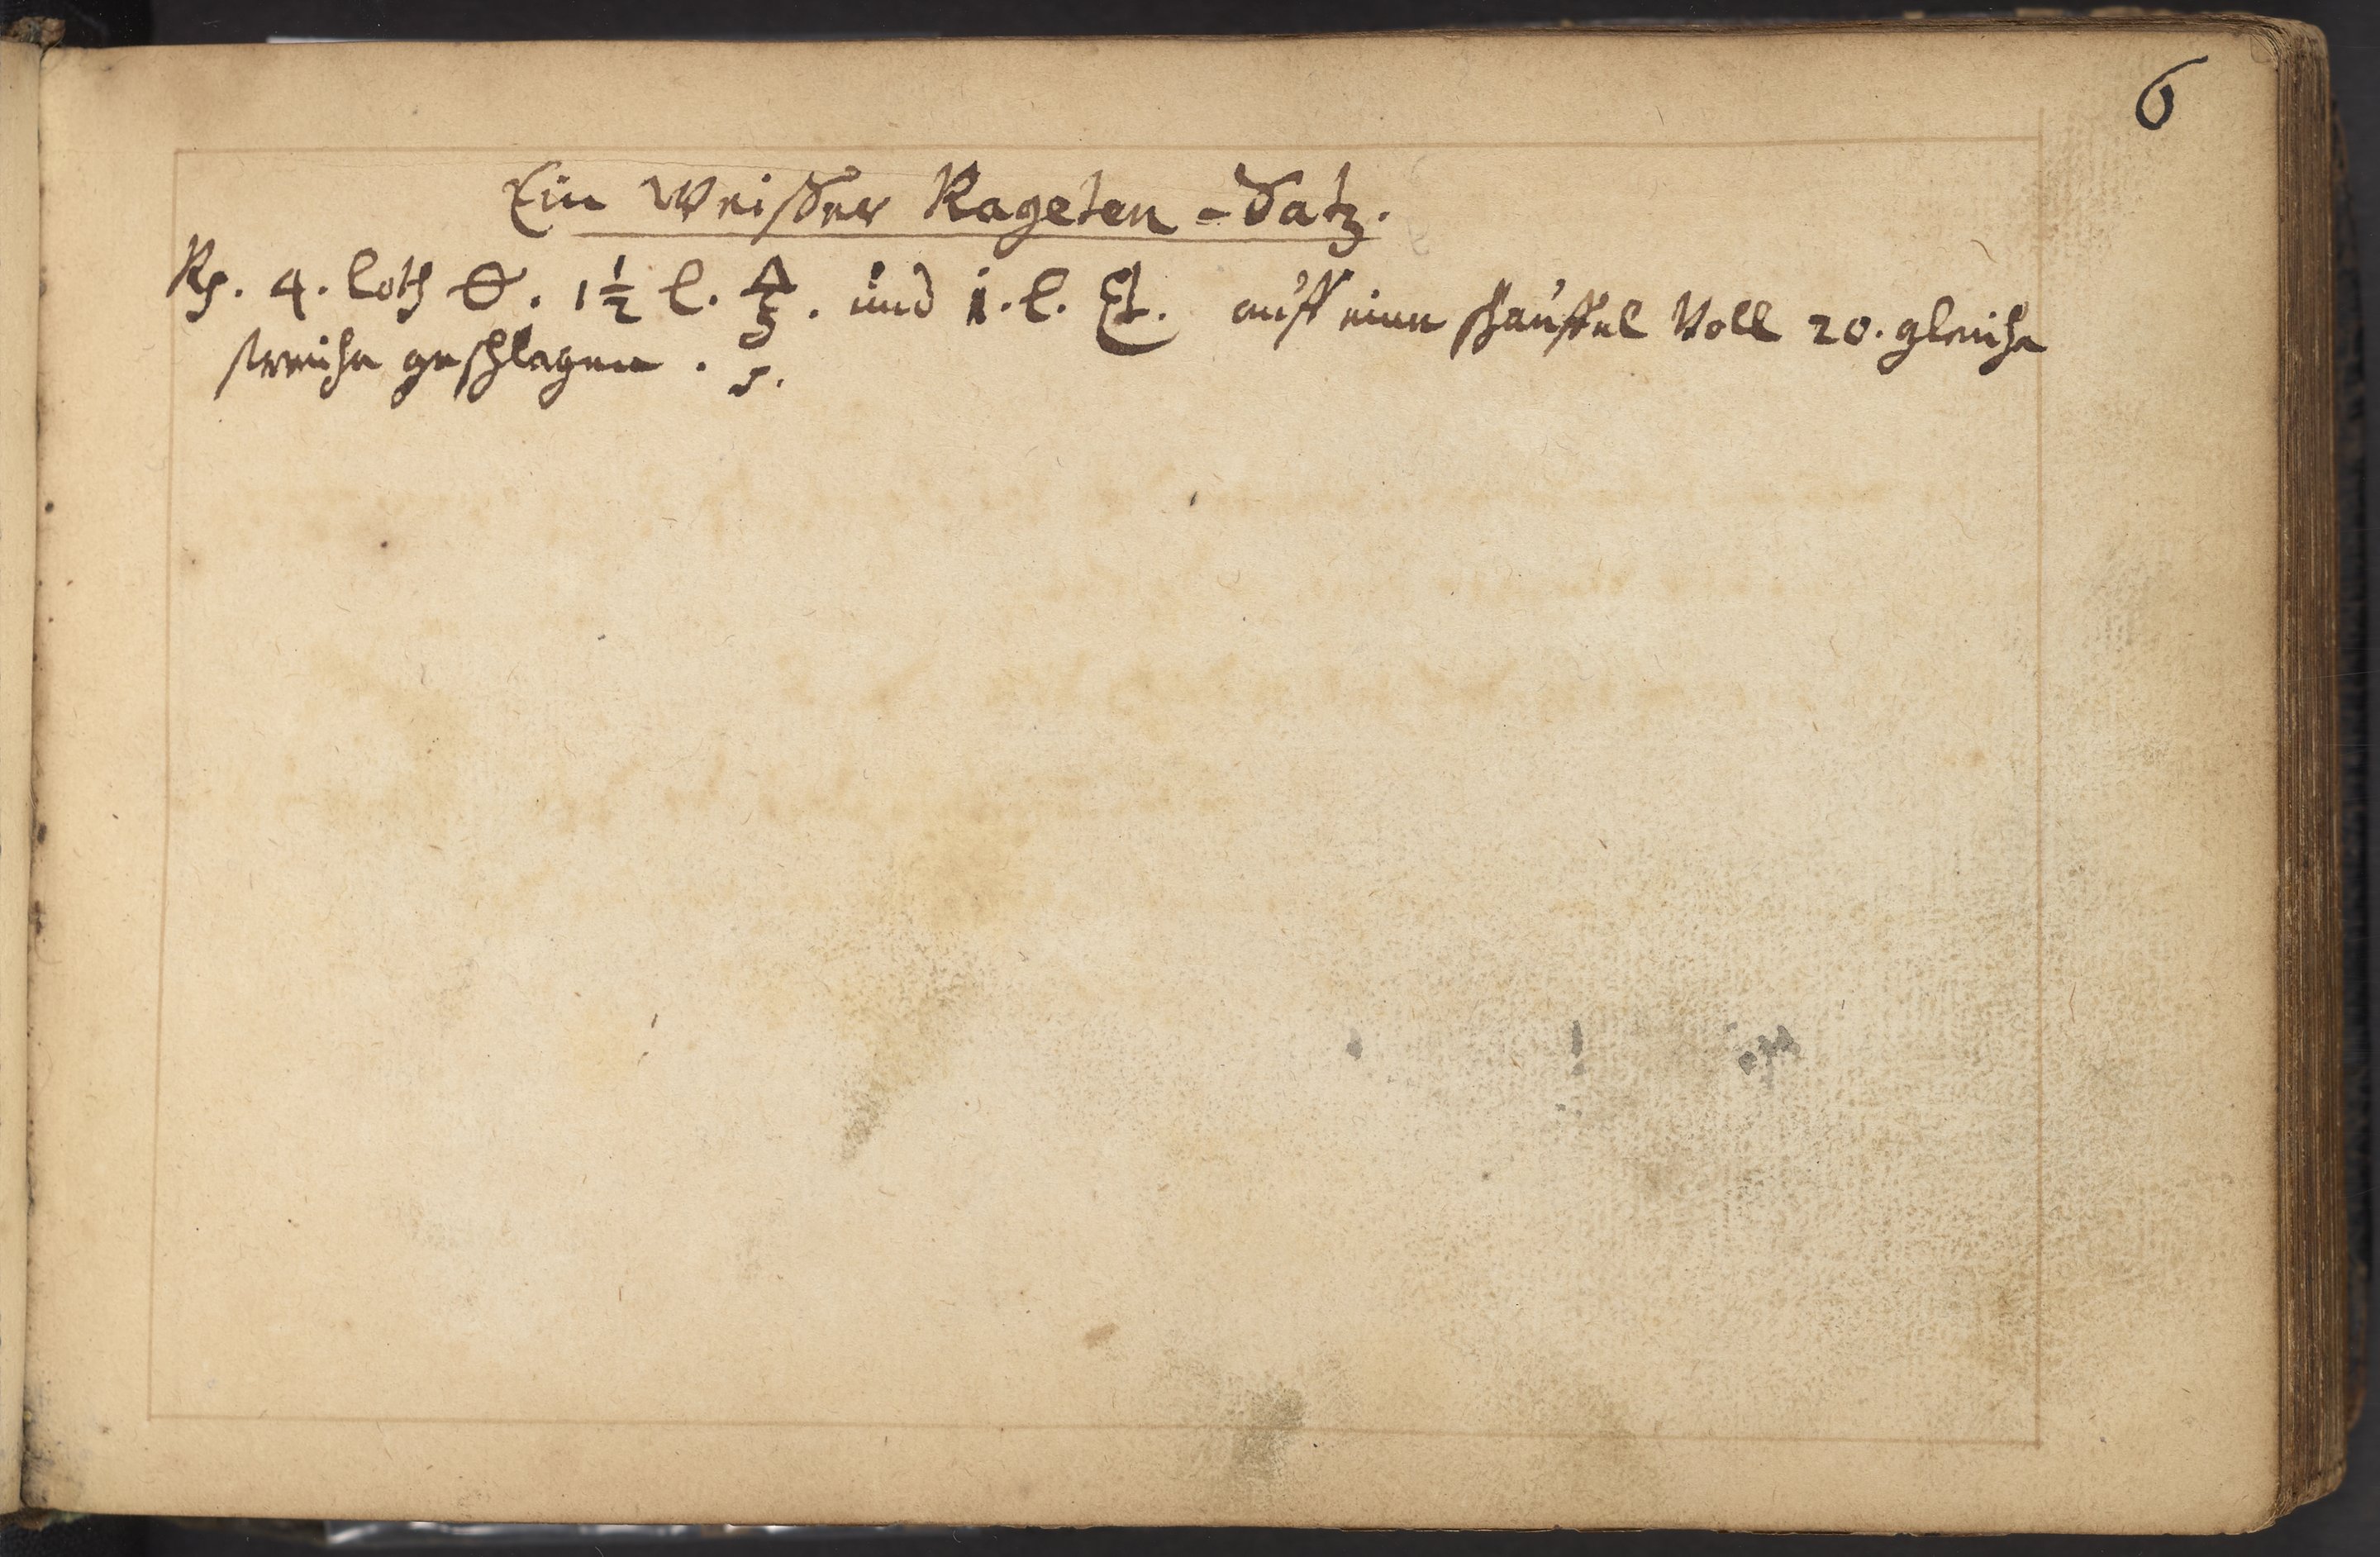 6
Ein Weisser Rageten-Satz.
Rp. 4. loth 🜔. 1½ l. 🜍. und i. l. auff eine schauffel Voll 20. gleiche
streiche geschlagen. s.